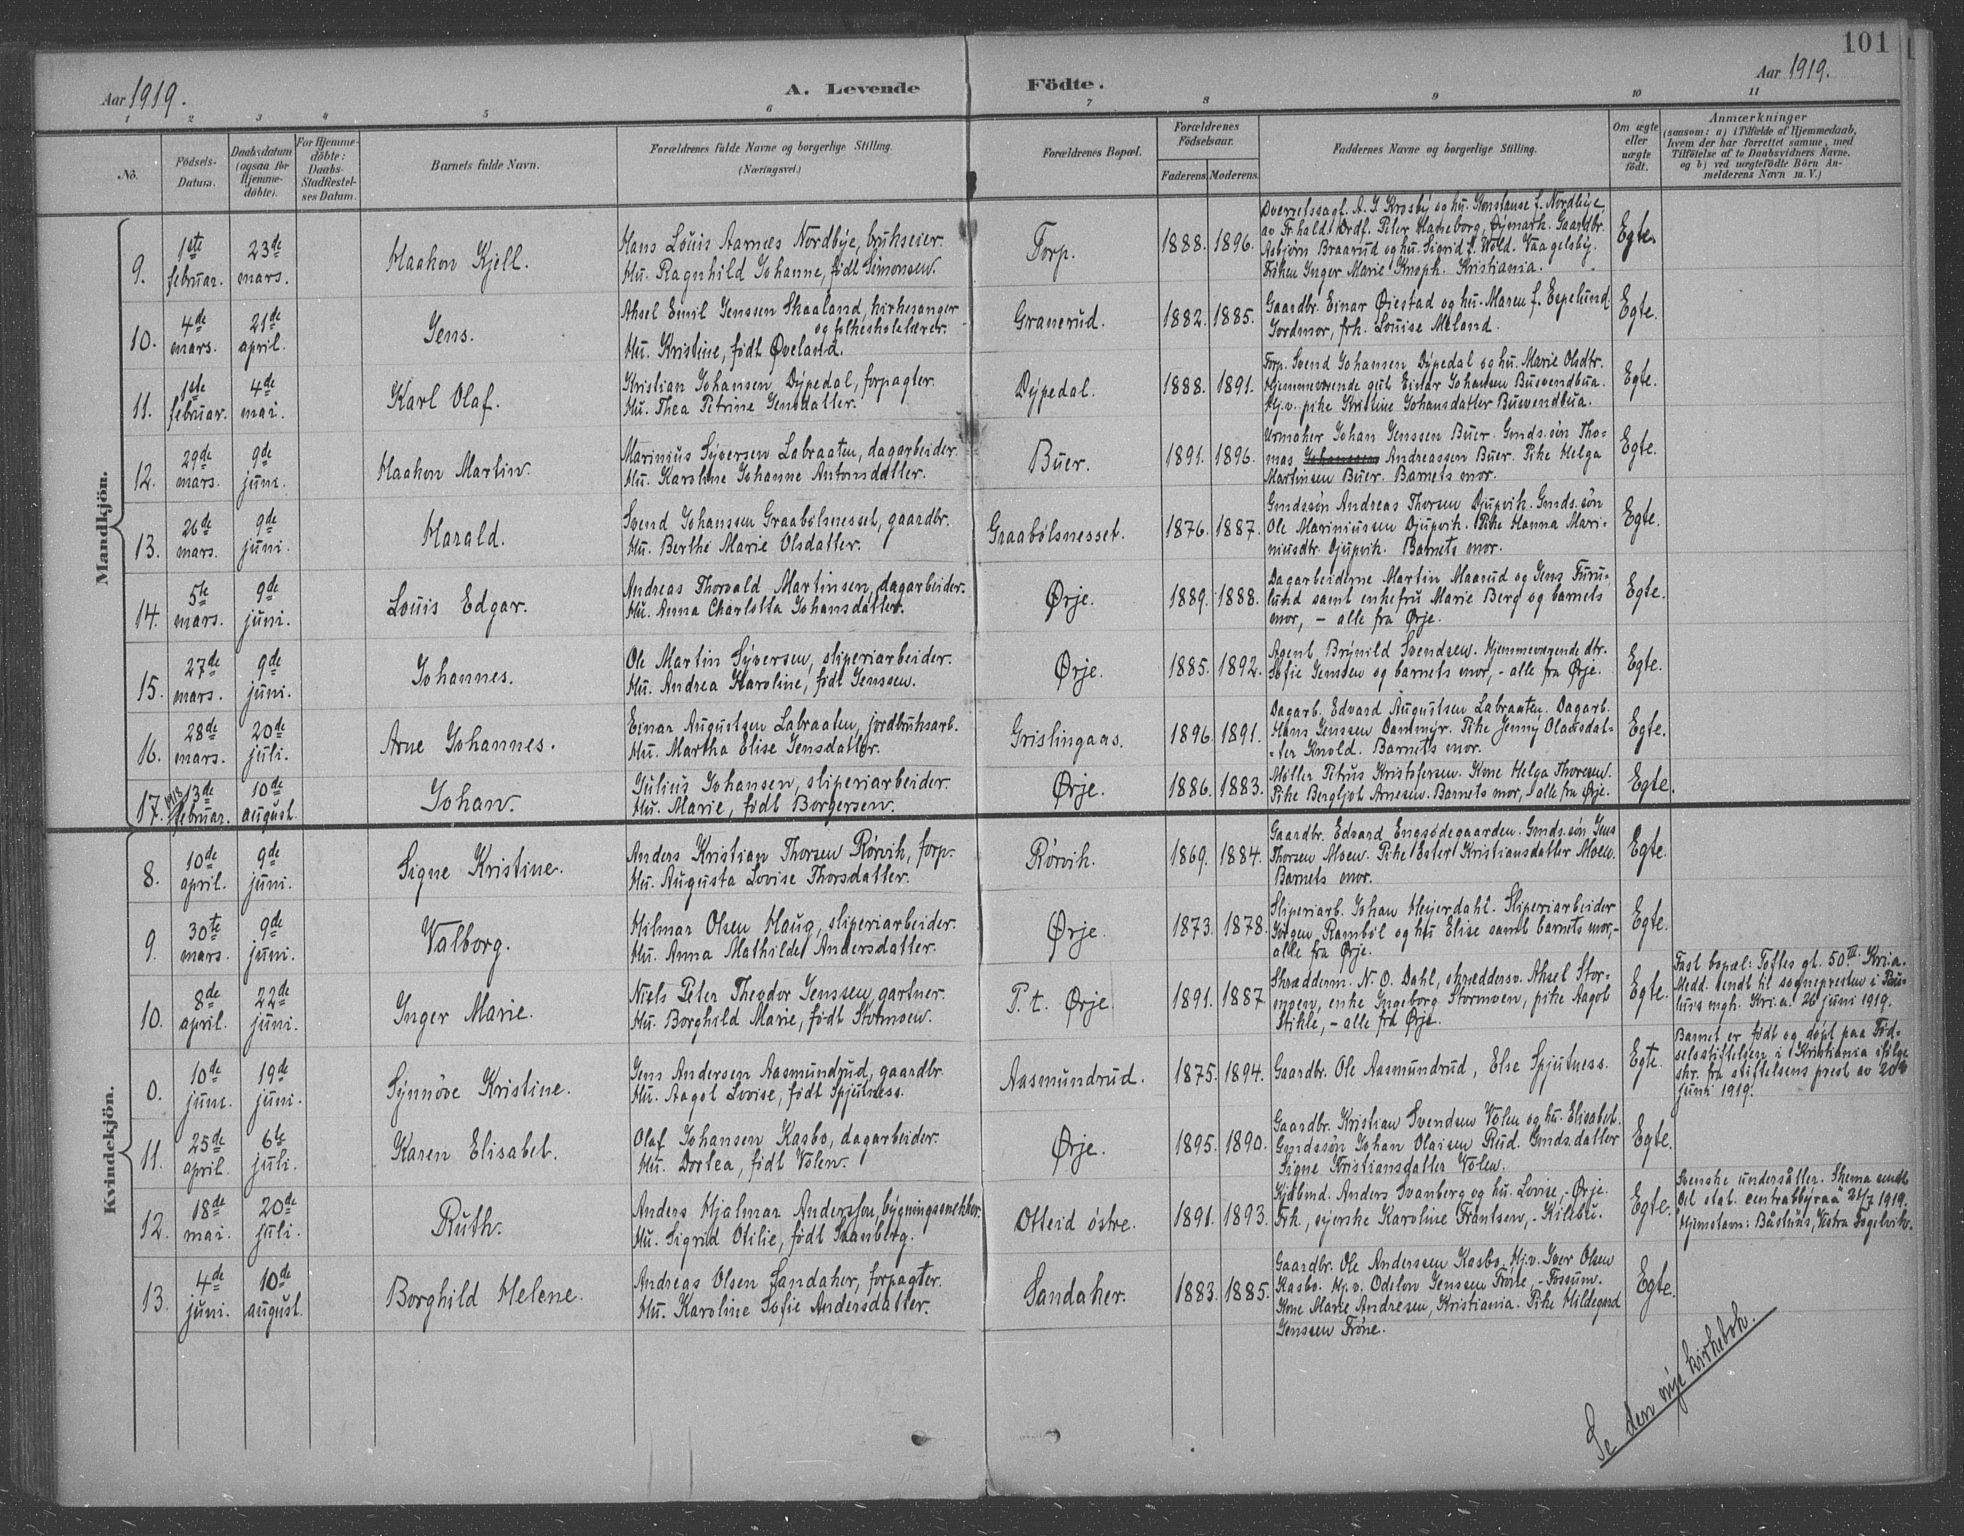 101
Aar 1919.
A. Levende Födte.
Aar 1919.
1 2 3 4 5 6 7 8 9 10 11
No.
Födsels-
Datum.
Daabsdatum
(ogsaa for
Hjemme-
döbte).
For Hjemme-
döbte:
Daabs-
Stadfæstel-
ses Datum.
Barnets fulde Navn.
Forældrenes fulde Navne og borgerlige Stilling.
(Næringsvei.)
Forældrenes Bopæl.
Forældrenes
Födselsaar.
Faderens. Moderens.
Faddernes Navne og borgerlige Stilling.
Om ægte
eller
uægte
födt.
Anmærkninger
(saasom: a) i Tilfælde af Hjemmedaab,
hvem der har forrettet samme, med
Tilföielse af to Daabsvidners Navne,
og b) ved uægtefödte Börn An-
melderens Navn m. V.)
Mandkjön.
9.
1ste
februar.
23de
mars.
Haakon Kjell.
Hans Louis Aarnæs Nordbye, brukseier.
Hu. Ragnhild Johanne, født Simonsen.
Torp.
1888. 1896.
A. J. Krosby og hu. Konstanse f. Nordbye
av Fr.hald. Ordf. Peter Haneborg, Øymark. Gaardbr.
Asbjørn Braarud og hu. Sigrid f. Wold. Vaagelsby.
Frøken Inger Marie Knoph. Kristiania.
Egte.
10.
4de
mars.
21de
april.
Jens.
Aksel Emil Jenssen Skaaland, kirkesanger
og folkeskolelærer.
Hu. Kristine, født Øveland.
Granerud.
1882. 1885.
Gaardbr. Einar Øiestad og hu. Maren f. Espelund
Jordmor, frk. Louise Meland.
Egte.
11.
1ste
februar.
4de
mai.
Karl Olaf.
Kristian Johansen Dypedal, forpagter.
Hu. Thea Petrine Jensdatter.
Dypedal.
1888. 1891.
Forp. Svend Johansen Dypedal og hu. Marie Olsdtr.
Hjemmeværende gut Einar Johansen Buevendbua.
Hj.v. pike Kristine Johansdatter Buevendbua.
Egte.
12.
29de
mars.
9de
juni.
Haakon Martin.
Marinius Syversen Labraaten, dagarbeider.
Hu. Karoline Johanne Antonsdatter.
Buer.
1891. 1896.
Urmaker Johan Jenssen Buer. Gmds.søn Tho-
mas Andreassen Buer. Pike Helga
Martinsen Buer. Barnets mor.
Egte.
13.
26de
mars.
9de
juni.
Harald.
Svend Johanssen Graabølsnesset, gaardbr.
Hu. Berthe Marie Olsdatter.
Graabølsnesset.
1876. 1887.
Gmdssøn Andreas Thorsen Djupvik. Gmds.søn
Ole Mariniussen Djupvik. Pike Hanna Mari-
niusdtr. Djupvik. Barnets mor.
Egte.
14.
5te
mars.
9de
juni.
Louis Edgar.
Andreas Thorvald Martinsen, dagarbeider.
Hu. Anna Charlotta Johansdatter.
Ørje.
1889. 1888.
Dagarbeiderne Martin Maarud og Jens Furu-
lund samt enkefru Marie Berg og barnets
mor, - alle fra Ørje.
Egte.
15.
27de
mars.
9de
juni.
Johannes.
Ole Martin Syversen, sliperiarbeider.
Hu. Andrea Karoline, født Jenssen.
Ørje.
1885. 1892.
Agent Brynild Svendsen. Hjemmeværende dtr.
Sofie Jensden og barnets mor, - alle fra Ørje.
Egte.
16.
28de
mars.
20de
juli.
Arne Johannes.
Einar Augustsen Labraaten, jordbruksarb.
Hu. Martha Elise Jensdatter.
Grislingaas.
1896 1891.
Dagarb. Edvard Augustsen Labraaten. Dagarb.
Hans Jenssen Dammyr. Pike Jenny Olausdat-
-ter Knold. Barnets mor.
Egte.
17.
1918
13de
februar.
10de
august.
Johan.
Julius Johansen, sliperiarbeider.
Hu. Marie, født Borgersen.
Ørje.
1886. 1883.
Møller Petrus Kristofersen. Kone Helga Thoresen.
Pike Bergljot Arnesen. Barnets mor, - alle fra Ørje.
Egte.
Kvindekjön.
8.
10de
april.
9de
juni.
Signe Kristine.
Anders Kristian Thorsen Rørvik, forp.
Hu. Augusta Lovise Thorsdatter.
Rørvik.
1869. 1884.
Gaardbr. Edvard Engsødegaarden. Gmds.søn Jens
Thorsen Moen. Pike Ester Kristiansdatter Moen.
Barnets mor.
Egte.
9.
30te
mars.
9de
juni.
Valborg.
Hilmar Olsen Haug, sliperiarbeider.
Hu. Anna Mathilde Andersdatter.
Ørje.
1873. 1878.
Sliperiarb. Johan Heyerdahl. Sliperiarbeider
Jørgen Rambøl og hu Elise samt barnets mor, -
alle fra Ørje.
Egte.
10.
8de
april.
22de
juni.
Inger Marie.
Niels Peter Theodor Jenssen, gartner.
Hu. Borghild Marie, født Stormoen.
P. t. Ørje
1891. 1887
Skrædderm. N. O. Dahl, skræddersv. Aksel Stor-
moen, enke Ingeborg Stormoen, pike Aagot
Stikle, - alle fra Ørje.
Egte.
Fast bopæl: Toftes gt. 50 Kr.i.a.
Medd. sendt til sogneprestem i Pau-
lus mgh. Kr.i.a. 26 juni 1919.
0.
10de
juni.
19de
juni.
Synnöve Kristine.
Jens Andersen Aasmundrud, gaardbr.
Hu. Aagot Lovise, født Spjutness.
Aasmundrud.
1875. 1894.
Gaardbr. Ole Aasmundrud, Else Spjutness.
Egte.
Barnet er født og døpt paa Fød-
selsstiftelsen i Kristiania ifølge
skr. fra stiftelsens prest av 20de
juni 1919.
11.
25de
april.
6te
juli.
Karen Elisabet.
Olaf Johansen Kasbo, dagarbeider.
Hu. Dortea, født Volen.
Ørje.
1895. 1890.
Gaardbr. Kristian Svendsen Volen og hu. Elisabet.
Gmdssøn Johan Olaisen Rud. Gmds.datter
Signe Kristiansdatter Volen.
Egte.
12.
18de
mai.
20de
juli.
Ruth.
Anders Hjalmar Andersson, bygningssnekker.
Hu. Sigrid Otilie, født Svanberg.
Otteid östre.
1891. 1893.
Kjøbmd. Anders Svanberg og hu. Lovise, - Ørje.
Frk., syerske Karoline Frantsen, - Kilebu.
Egte.
Svenske undersåtter. Skema sendt
Det stat. centralbyraa 21/7 1919.
Hjemstavn: Båstnäs, Vestra Fogelvik.
13.
4de
juni.
10de
august.
Borghild Helene.
Andreas Olsen Sandaker, forpagter.
Hu. Karoline Sofie Andersdatter.
Sandaker.
1883. 1885.
Gaardbr. Ole Anderssen Kasbo, Hj.v. Iver Olsen
Kasbo. Hj.v. Odelov Jenssen Frøne, - Fossum.
Kone Marie Andresen, Kristiania. Pike Hildegard
Jenssen Frøne.
Egte.
Se den nye kirkebok.